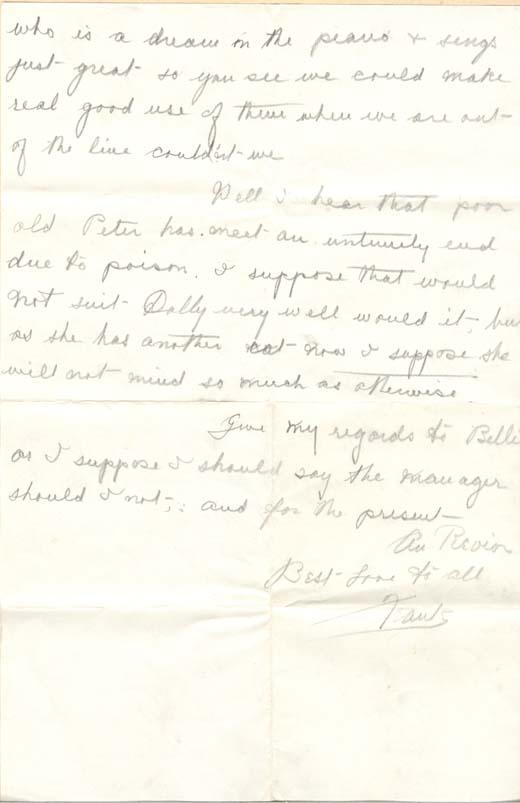 who is a dream on the peano & sings
just great so you see we could make
real good use of them when we are out
of the line could'st we
Well I hear that poor
old Peter has meet an untimity end
due to poison. I suppose that would
not suit Dolly very well would it, but
as she has another cat now I suppose she
will not mind so much as otherwise.
Give my regards to Billi
or I suppose I should say the Manager
should I not; and for the present
Au Revior
Best Love to all